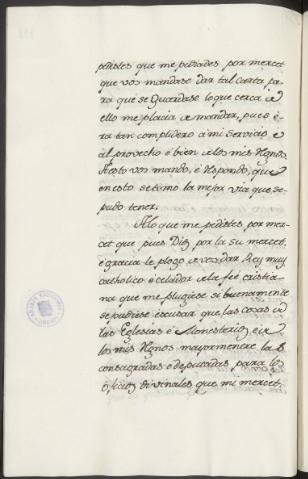 pedistes que me pidiades por mercet
que vos mandase dar tal carta pa-
ra que se Guardase lo que cerca de
ello me placia de mandar, pues e-
ra tan complidero a mi servicio e
al provecho e bien de los mis Regnos.
A esto vos mando, e respondo, que
en esto se tomo la mejor via que se
pudo tener.
A lo que me pedistes por mer-
cet que pues Dios por la su mercet,
e gracia le plogo de vos dar Rey muy
catholico e celador de la fé cristia-
na que me plugiese si buenamente
se pudiese escusar que las cosas de
las Eglesias e Monesterios de
los mis Regnos mayormente las
consagradas e deputadas para los
oficios divinales que mi mercet